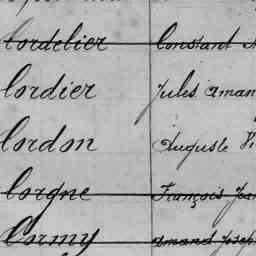 Cordelier Constant
Cordier Jules Aman
Cordon Auguste
Corgne François Jean
Cormy Amand Josep